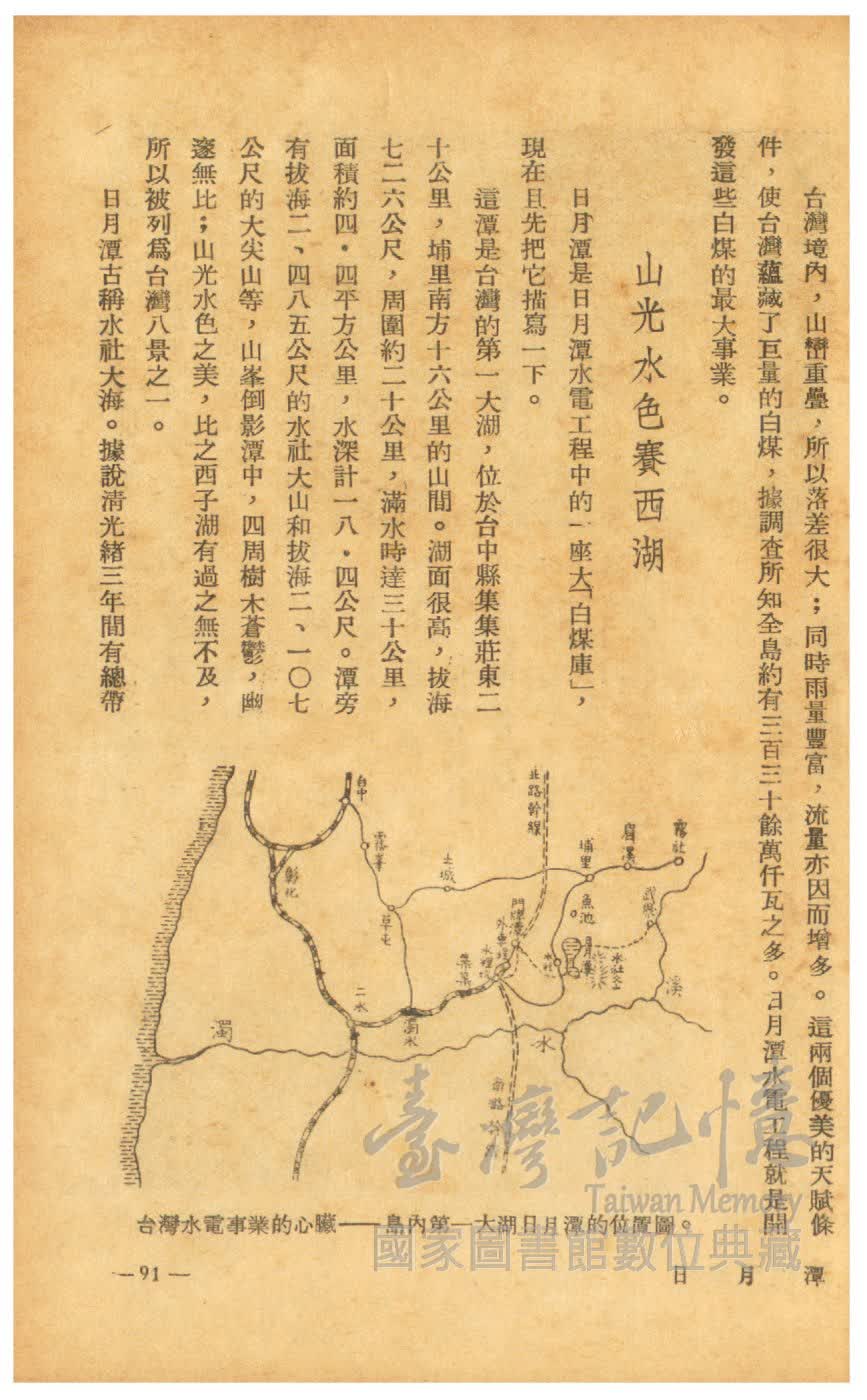 台灣境內，山巒重疊，所以落差很大；同時雨量豐富，流量亦因而增多。這兩個優美的天賦條
件，使台灣蘊藏了巨量的白煤，據調查所知全島約有三百三十餘萬仟瓦之多。日月潭水電工程就是開
發這些白煤的最大事業。
山光水色賽西湖
日月潭是日月潭水電工程中的一座大「白煤庫」，
現在且先把它描寫一下。
這潭是台灣的第一大湖，位於台中縣集集莊東二
十公里，埔里南方十六公里的山間。湖面很高，拔海
七二六公尺，周圍約二十公里，滿水時達三十公里，
面積約四・四平方公里，水深計一八・四公尺。潭旁
有拔海二、四八五公尺的水社大山和拔海二、一〇七
公尺的大尖山等，山峯倒影潭中，四周樹木蒼鬱，幽
邃無比；山光水色之美，比之西子湖有過之無不及，
所以被列爲台灣八景之一。
日月潭古稱水社大海。據說淸光緒三年間有總帶
台中
霧峯
草屯
彰化
土城
北路幹線
埔里
眉溪
霧社
魚池
武界
門牌潭
外車埕
水裡坑
集集
水社
日月潭
水社大山
二水
濁水
濁
水
溪
南路幹
台灣水電事業的心臟——島內第一大湖日月潭的位置圖。
— 91 —
日月潭
臺灣記憶
Taiwan Memory
國家圖書館數位典藏